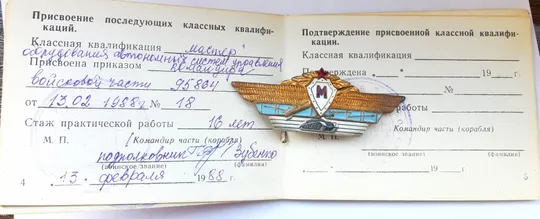 Присвоение последующих классных квалифи-
каций.
Классная квалификация мастер
оборудования автономных систем управления
Присвоена приказом командира
войсковой части 95804
от 13.02 1988 г № 18
Стаж практической работы 16 лет
М. П. Командир части (корабля)
подполковник Зубенко
(воинское звание) (фамилия)
4 13 февраля 1988 г.
Подтверждение присвоенной классной квалифи-
кации.
Классная квалификация
19 г.
№
М
работы
Командир части (корабля)
М. П.
(воинское звание) (фамилия)
19 г.
5